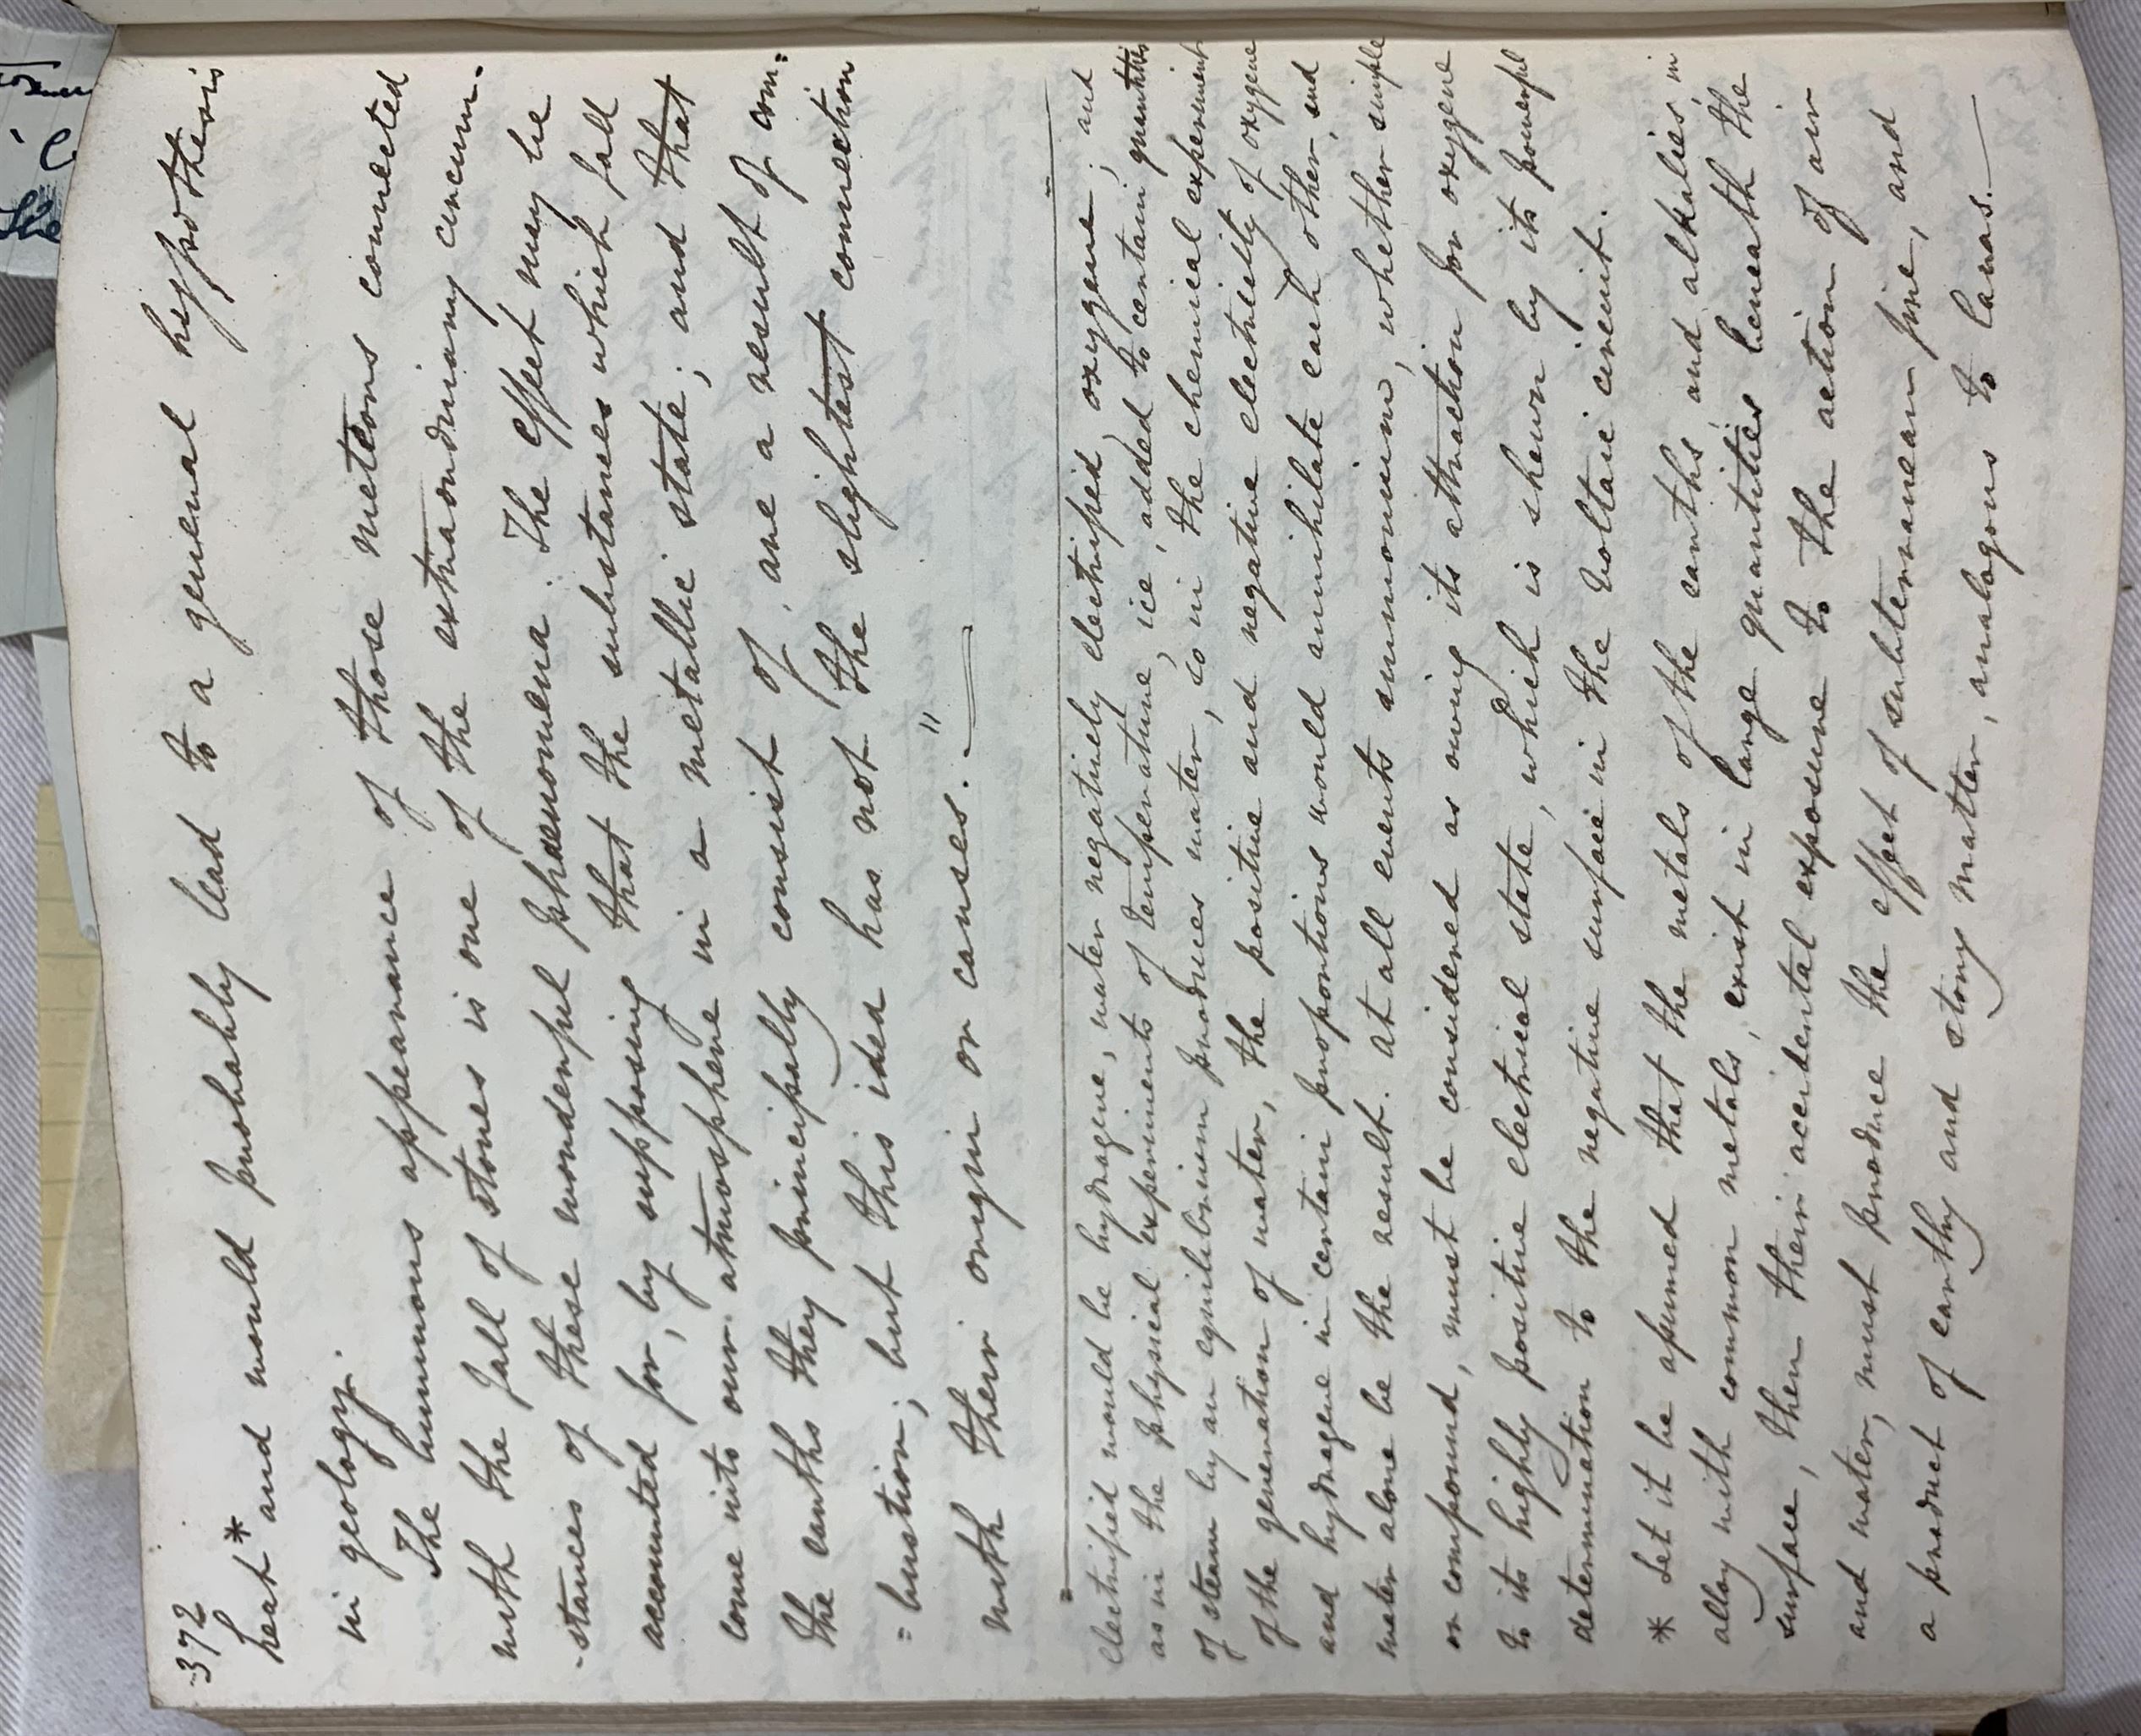 372
heat* and would probably lead to a general hypothesis
in geology.
The luminous appearance of those meteors connected
with the fall of stones is one of the extraordinary circum-
-stances of these wonderful phaenomena. The effect may be
accounted for, by supposing that the substances which fall
come into our atmosphere in a metallic state; and that
the earths they principally consist of, are a result of com=
=bustion; but this idea has not the slightest connection
with their origin or causes."
electrified would be hydrogene, water negatively electrified, oxygene; and
as in the physical experiments of temperature, ice, added to certain quantities
of steam by an equilibrium produces water, so in the chemical experiment
of the generation of water, the positive and negative electricity of oxygene
and hydrogene in certain proportions would annihilate each other, and
water alone be the result. At all events ammonium, whether simple
or compound, must be considered as owing its attraction for oxygene
to its highly positive electrical state, which is shewn by its powerful
determination to the negative surface in the Voltaic circuit.
* Let it be assumed that the metals of the earths, and alkalies, in
alloy with common metals, exist in large quantities beneath the
surface, then their accidental exposure to the action of air
and water, must produce the effect of subterranean fire, and
a product of earthy and stony matter, analogous to lavas.